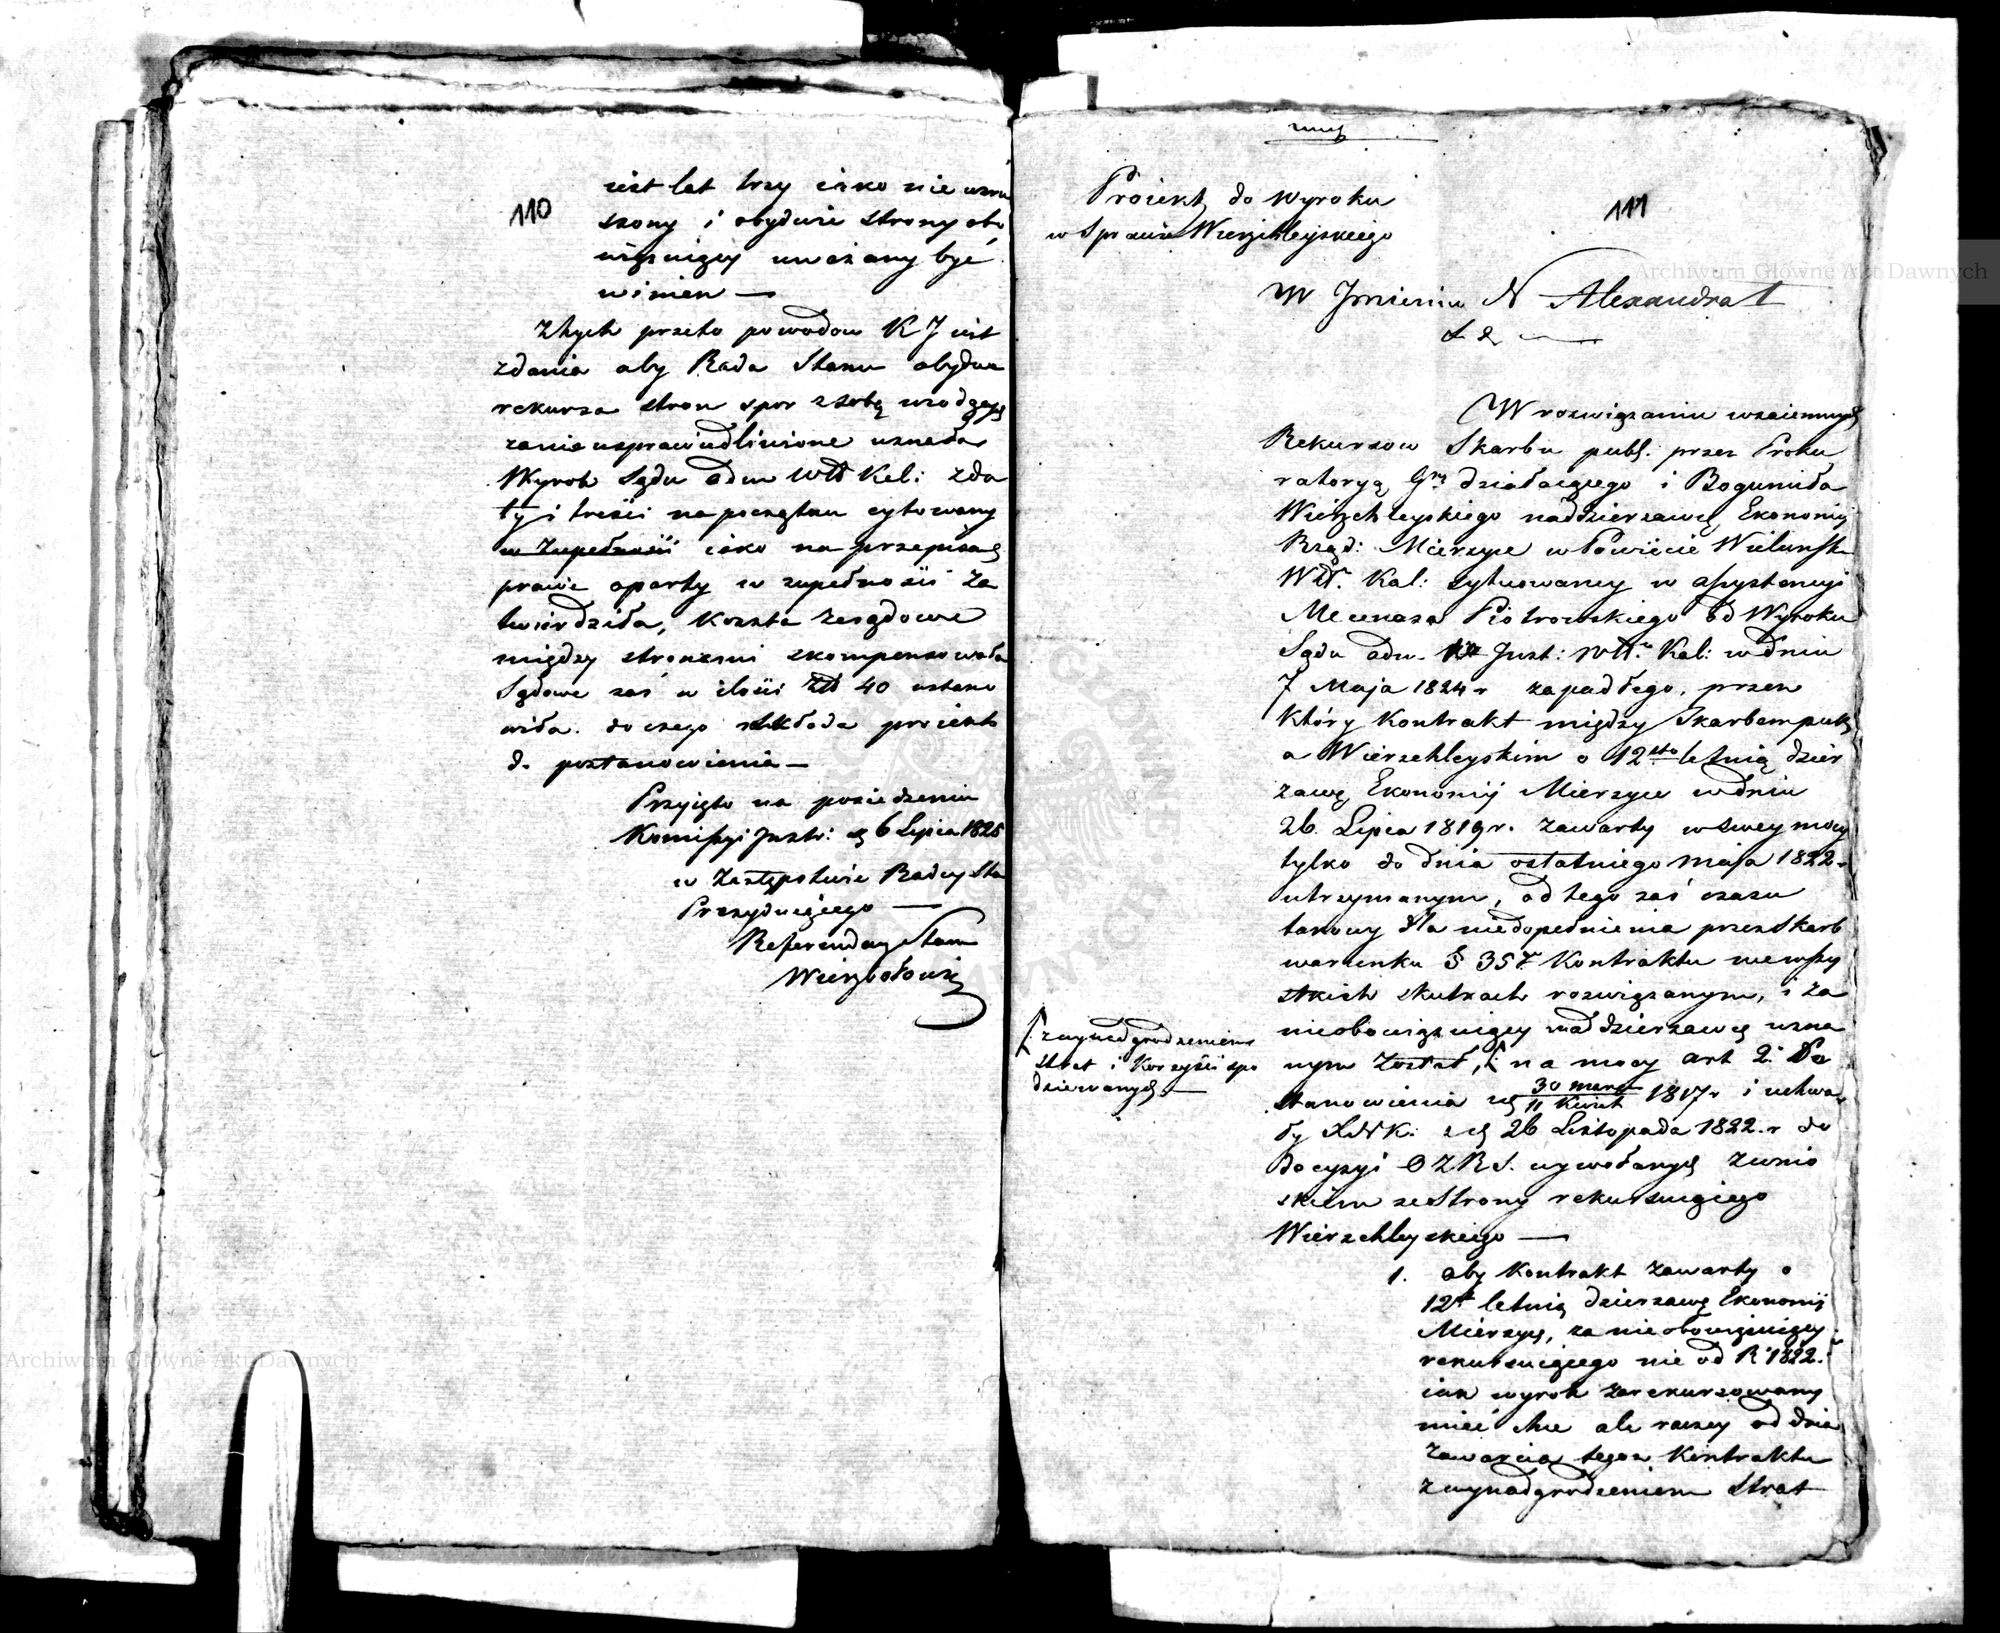 110
iest lat trzy iako nie wzru
szony i obydwie strony obo
wiązuiący uważany być
winien —
Z tych przeto powodow K J iest
zdania aby Rada Stanu obydwa
rekursa stron spor z sobą wiodących
za nieusprawiedliwione uznała
Wyrok Sądu adm Wdt Kal: z da
ty i treści na początku cytowany
w zupełności iako na przepisach
prawa oparty w zupełności za
twierdziła, koszta zasądowe
między stronami skompensowała
Sądowe zaś w ilości Złp 40 ustano
wiła. do czego składa proiekt
d. postanowienia —
Przyięto na posiedzeniu
Komissyi Justr: d 6 Lipca 1825
w Zastępstwie Radcy Sta
Prezyduiącego —
Referendarz Stanu
Wierzbołowicz
111
Proiekt do Wyroku
w Sprawie Wierzchleyskiego
W Jmieniu N Alexandra I
& &
W rozwiązaniu wzaiemnych
Rekursow Skarbu publ. przez Proku
ratoryą Gną działaiącego i Bogumiła
Wierzchleyskiego naddzierzawcę Ekonomij
Rząd: Mierzyce w Powiecie Wieluńsk
Wdt. Kal: sytuowaney w assystencyi
Mecenasa Piotrowskiego od Wyroku
Sądu adm. Just: Wdt. Kal: w dniu
7 Maja 1824 r zapadłego, przez
który kontrakt między Skarbem publ
a Wierzchleyskim o 12sto letnią dzier
zawę Ekonomij Mierzyce w dniu
26. Lipca 1819 r. zawarty w swey mocy
tylko do dnia ostatniego maja 1822.
utrzymanym, od tego zaś czasu
takowy dla niedopełnienia przez Skarb
warunku § 35go kontraktu we wszy
stkich skutkach rozwiązanym, i za
nieobowiązuiący naddzierzawcę uzna
nym został, [: na mocy art 2. Po
stanowienia z d 30 marca / 11 Kwiet 1817 r i uchwa
ły XNK: z d 26 Listopada 1822. r do
decyzyi OZRS. wywołanych z wnio
skiem ze Strony rekuruiącego
Wierzchleyskiego —
[: z wynadgrodzeniem
strat i korzyści spo
dziewanych —
1. aby kontrakt zawarty o
12to letnią dzierzawę Ekonomij
Mierzyce, za nieobowiązuiący
rekuruiącego nie od R 1822.
iak wyrok zarekursowany
mieć chce ale raczey od dnia
zawarcia tegoz kontraktu
z wynadgrodzeniem strat
Archiwum Główne Akt Dawnych
Archiwum Główne Akt Dawnych